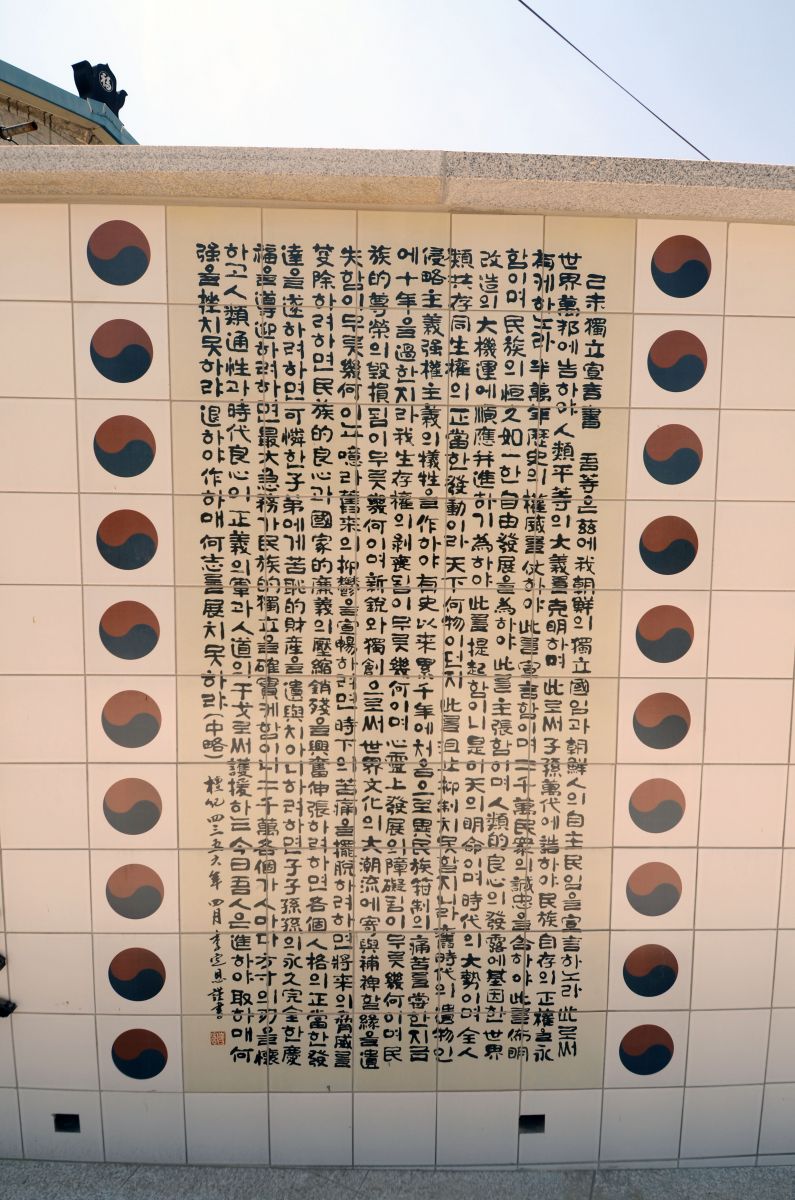 福
己未獨立宣言書 吾等은玆에我朝鮮의獨立國임과朝鮮人의自主民임을宣言하노라此로써
世界萬邦에告하야人類平等의大義를克明하며此로써子孫萬代에誥하야民族自存의正權을永
有케하노라半萬年歷史의權威를仗하야此를宣言함이며二千萬民衆의誠忠을合하야此를佈明
함이며民族의恒久如一한自由發展을爲하야此를主張함이며人類的良心의發露에基因한世界
改造의大機運에順應幷進하기爲하야此를提起함이니是이天의明命이며時代의大勢이며全人
類共存同生權의正當한發動이라天下何物이던지此를沮止抑制치못할지니라舊時代의遺物인
侵略主義强權主義의犧牲을作하야有史以來累千年에처음으로異民族箝制의痛苦를嘗한지금
에十年을過한지라我生存權의剝喪됨이무릇幾何이며心靈上發展의障礙됨이무릇幾何이며民
族的尊榮의毁損됨이무릇幾何이며新銳와獨創으로써世界文化의大潮流에寄與補裨할緣을遺
失함이무릇幾何이뇨噫라舊來의抑鬱을宣暢하려하면時下의苦痛을擺脫하려하면將來의脅威를
芟除하려하면民族的良心과國家的廉義의壓縮銷殘을興奮伸張하려하면各個人格의正當한發
達을遂하려하면可憐한子弟에게苦恥的財産을遺與치아니하려하면子子孫孫의永久完全한慶
福을導迎하려하면最大急務가民族的獨立을確實케함이니二千萬各個가人마다方寸의刃을懷
하고人類通性과時代良心이正義의軍과人道의干戈로써護援하는今日吾人은進하야取하매何
强을挫치못하랴退하야作하매何志를展치못하랴(中略) 檀紀四三五六年四月 謹書